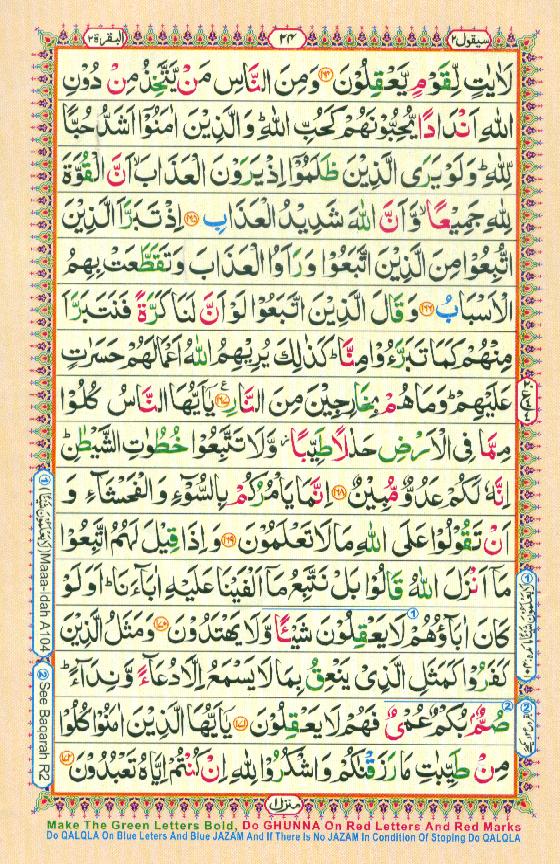 سيقول٢ ٢٤ البقرة٢
لَاٰيٰتٍ لِّقَوْمٍ يَّعْقِلُوْنَ ﴿۱۶۴﴾ وَمِنَ النَّاسِ مَنْ يَّتَّخِذُ مِنْ دُوْنِ
اللّٰهِ اَنْدَادًا يُّحِبُّوْنَهُمْ كَحُبِّ اللّٰهِ ؕ وَالَّذِيْنَ اٰمَنُوْٓا اَشَدُّ حُبًّا
لِّلّٰهِ ؕ وَلَوْ يَرَى الَّذِيْنَ ظَلَمُوْٓا اِذْ يَرَوْنَ الْعَذَابَ ۙ اَنَّ الْقُوَّةَ
لِلّٰهِ جَمِيْعًا ۙ وَّاَنَّ اللّٰهَ شَدِيْدُ الْعَذَابِ ﴿۱۶۵﴾ اِذْ تَبَرَّاَ الَّذِيْنَ
اتُّبِعُوْا مِنَ الَّذِيْنَ اتَّبَعُوْا وَرَاَوُا الْعَذَابَ وَتَقَطَّعَتْ بِهِمُ
الْاَسْبَابُ ﴿۱۶۶﴾ وَقَالَ الَّذِيْنَ اتَّبَعُوْا لَوْ اَنَّ لَنَا كَرَّةً فَنَتَبَرَّاَ
مِنْهُمْ كَمَا تَبَرَّءُوْا مِنَّا ؕ كَذٰلِكَ يُرِيْهِمُ اللّٰهُ اَعْمَالَهُمْ حَسَرٰتٍ
عَلَيْهِمْ ؕ وَمَا هُمْ بِخٰرِجِيْنَ مِنَ النَّارِ ﴿۱۶۷﴾ ع يٰٓاَيُّهَا النَّاسُ كُلُوْا
مِمَّا فِى الْاَرْضِ حَلٰلًا طَيِّبًا ۖ وَّلَا تَتَّبِعُوْا خُطُوٰتِ الشَّيْطٰنِ ؕ
اِنَّهٗ لَكُمْ عَدُوٌّ مُّبِيْنٌ ﴿۱۶۸﴾ اِنَّمَا يَاْمُرُكُمْ بِالسُّوْٓءِ وَالْفَحْشَآءِ وَ
اَنْ تَقُوْلُوْا عَلَى اللّٰهِ مَا لَا تَعْلَمُوْنَ ﴿۱۶۹﴾ وَاِذَا قِيْلَ لَهُمُ اتَّبِعُوْا
مَآ اَنْزَلَ اللّٰهُ قَالُوْا بَلْ نَتَّبِعُ مَآ اَلْفَيْنَا عَلَيْهِ اٰبَآءَنَا ؕ اَوَلَوْ
كَانَ اٰبَآؤُهُمْ لَا يَعْقِلُوْنَ شَيْـًٔا وَّلَا يَهْتَدُوْنَ ﴿۱۷۰﴾ وَمَثَلُ الَّذِيْنَ
كَفَرُوْا كَمَثَلِ الَّذِىْ يَنْعِقُ بِمَا لَا يَسْمَعُ اِلَّا دُعَآءً وَّنِدَآءً ؕ
صُمٌّۢ بُكْمٌ عُمْىٌ فَهُمْ لَا يَعْقِلُوْنَ ﴿۱۷۱﴾ يٰٓاَيُّهَا الَّذِيْنَ اٰمَنُوْا كُلُوْا
مِنْ طَيِّبٰتِ مَا رَزَقْنٰكُمْ وَاشْكُرُوْا لِلّٰهِ اِنْ كُنْتُمْ اِيَّاهُ تَعْبُدُوْنَ ﴿۱۷۲﴾
منزل١
Maaa-idah A104
2 See Baqarah R2
Make The Green Letters Bold, Do GHUNNA On Red Letters And Red Marks
Do QALQLA On Blue Leters And Blue JAZAM And If There Is No JAZAM In Condition Of Stoping Do QALQLA